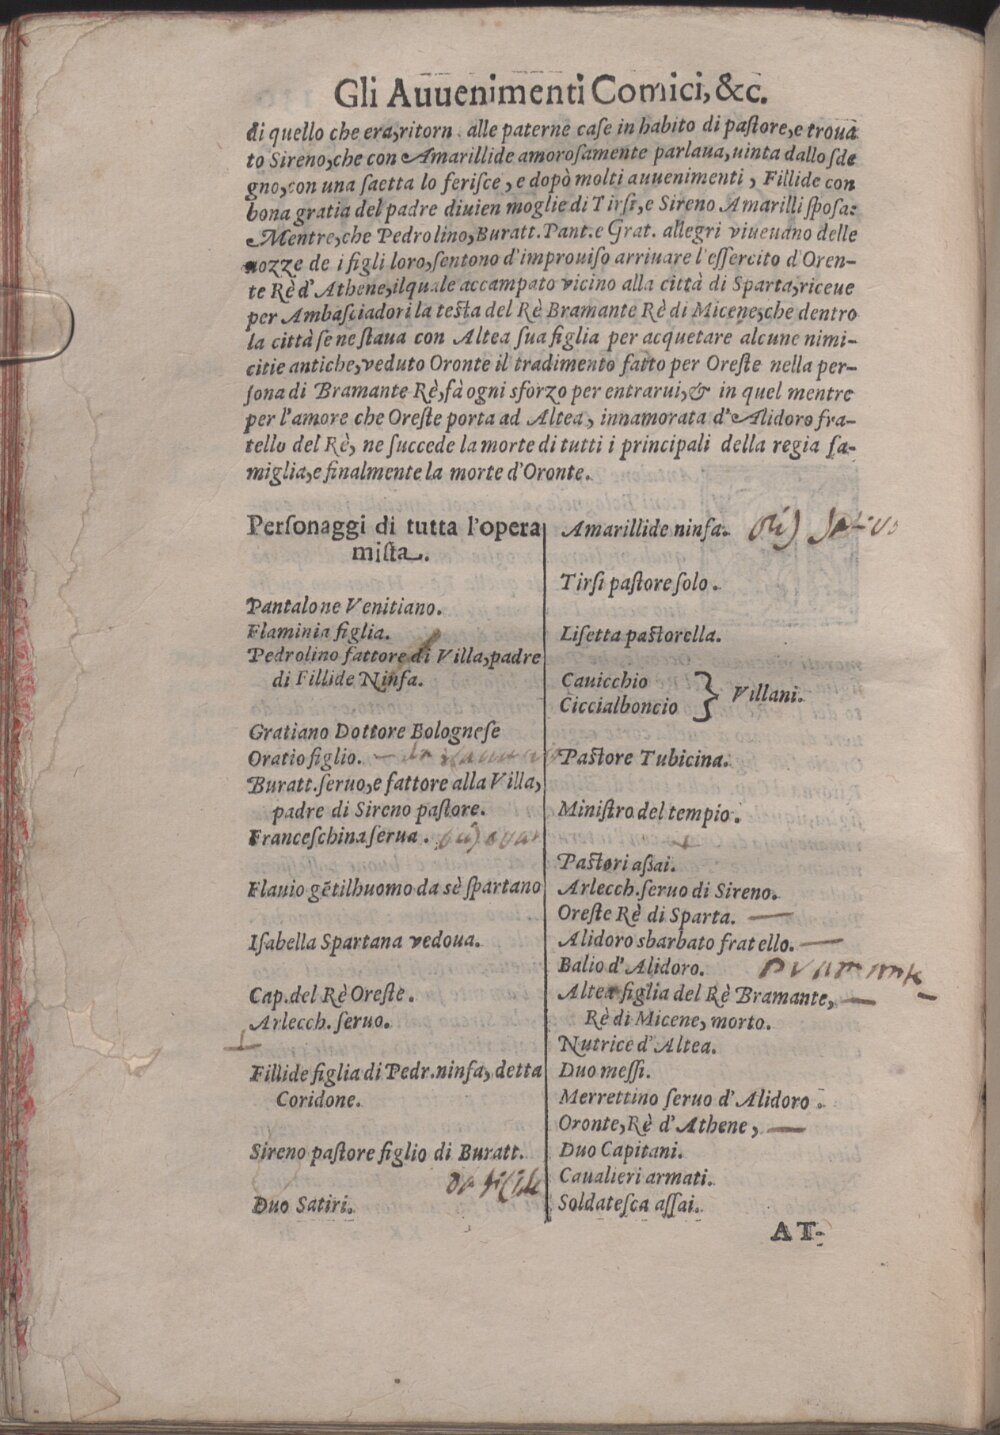 Gli Auuenimenti Comici, &c.
di quello che era, ritorn. alle paterne case in habito di pastore, e trouā
to Sireno, che con Amarillide amorosamente parlaua, uinta dallo sde
gno, con una saetta lo ferisce, e dopò molti auuenimenti, Fillide con
bona gratia del padre diuien moglie di Tirsi, e Sireno Amarilli sposa:
Mentre, che Pedrolino, Buratt. Pant. e Grat. allegri viueuano delle
nozze de i figli loro, sentono d'improuiso arriuare l'essercito d'Oren-
te Rè d'Athene, ilquale accampato vicino alla città di Sparta, riceue
per Ambasciadori la testa del Rè Bramante Rè di Micene, che dentro
la città se ne staua con Altea sua figlia per acquetare alcune nimi-
citie antiche, veduto Oronte il tradimento fatto per Oreste nella per-
sona di Bramante Rè, fà ogni sforzo per entrarui, & in quel mentre
per l'amore che Oreste porta ad Altea, innamorata d'Alidoro fra-
tello del Rè, ne succede la morte di tutti i principali della regia fa-
miglia, e finalmente la morte d'Oronte.
Personaggi di tutta l'opera
mista.
Pantalone Venitiano.
Flaminia figlia.
Pedrolino fattore di Villa, padre
di Fillide Ninfa.
Gratiano Dottore Bolognese
Oratio figlio.
Buratt. seruo, e fattore alla Villa,
padre di Sireno pastore.
Franceschina serua.
Flauio gētilhuomo da sè spartano
Isabella Spartana vedoua.
Cap. del Rè Oreste.
Arlecch. seruo.
Fillide figlia di Pedr. ninfa, detta
Coridone.
Sireno pastore figlio di Buratt.
Duo Satiri.
Amarillide ninfa.
Tirsi pastore solo.
Lisetta pastorella.
Cauicchio
Ciccialboncio } Villani.
Pastore Tubicina.
Ministro del tempio.
Pastori assai.
Arlecch. seruo di Sireno.
Oreste Rè di Sparta.
Alidoro sbarbato fratello.
Balio d'Alidoro.
Altea figlia del Rè Bramante,
Rè di Micene, morto.
Nutrice d'Altea.
Duo messi.
Merrettino seruo d'Alidoro.
Oronte, Rè d'Athene,
Duo Capitani.
Caualieri armati.
Soldatesca assai.
AT-